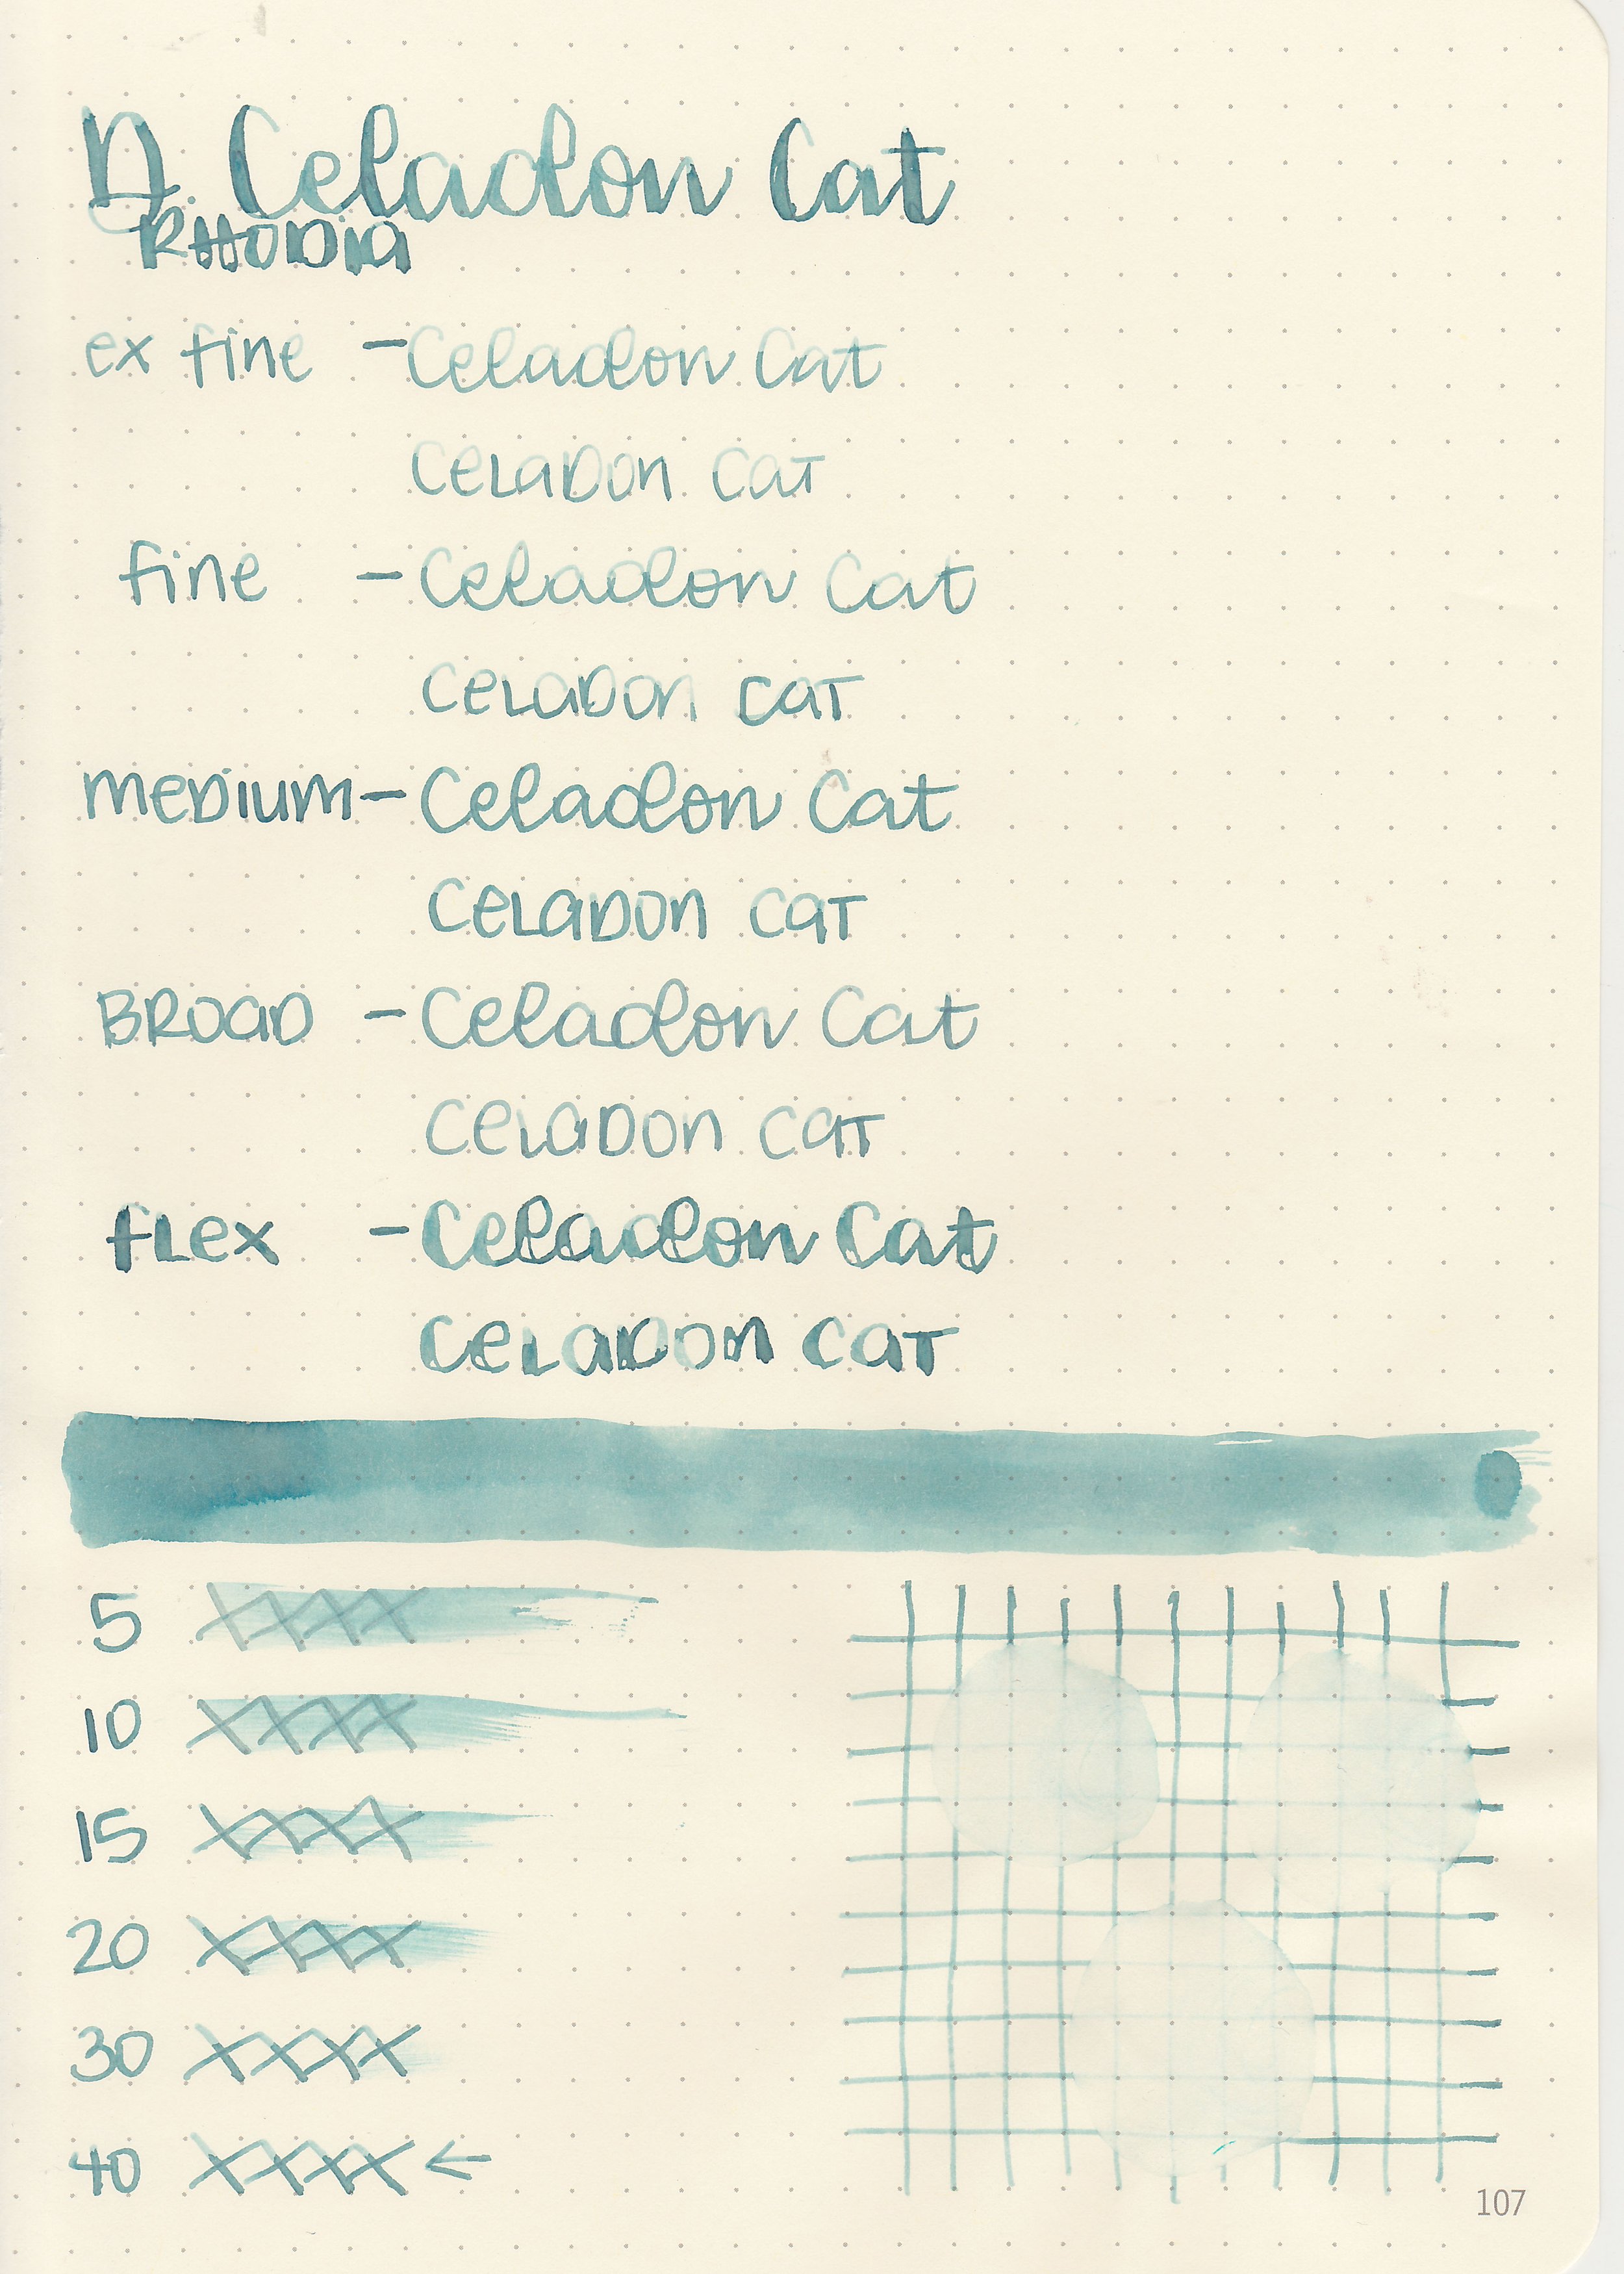 D. Celadon Cat
RHODIA
ex fine - Celadon Cat
CeLaDon CaT
fine - Celadon Cat
CeLaDon CaT
meDium - Celadon Cat
CeLaDon CaT
BROaD - Celadon Cat
CeLaDon CaT
fLex - Celadon Cat
CeLaDon CaT
5 XXXX
10 XXXX
15 XXXX
20 XXXX
30 XXXX
40 XXXX ←
107